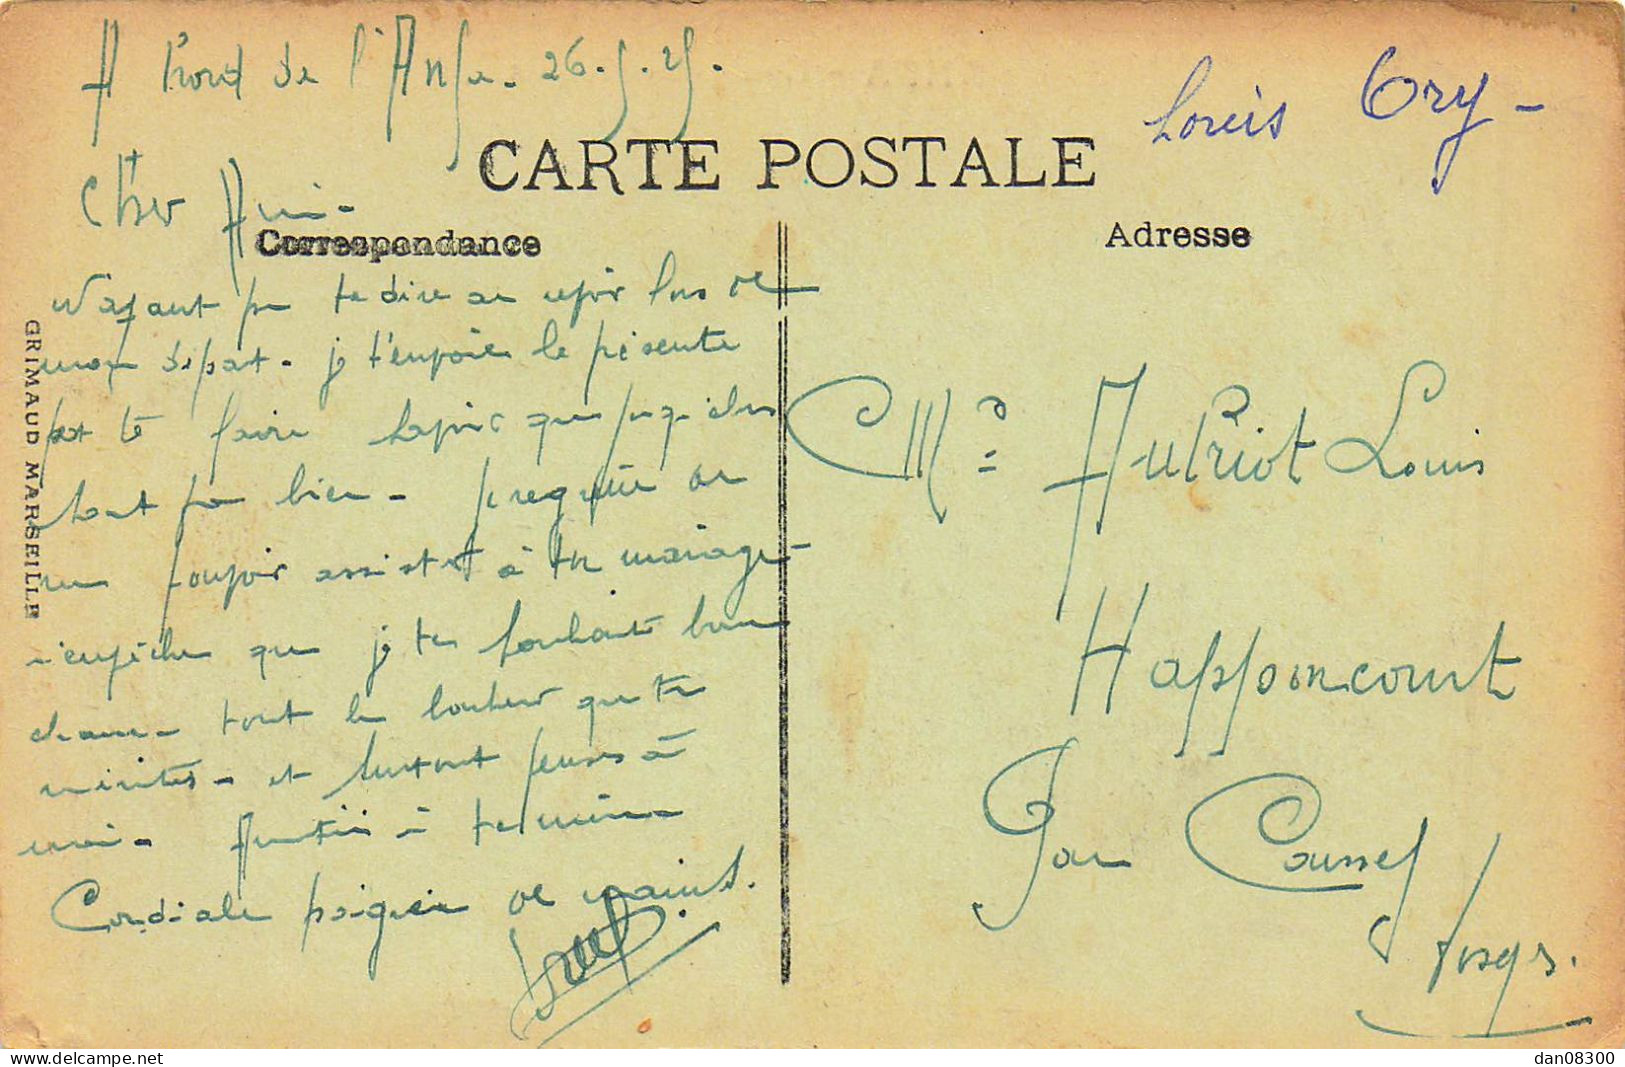 A bord de l'Anfa. 26.5.25.
Louis Ory -
CARTE POSTALE
Cher Ami -
Correspondance
Adresse
N'ayant pu te dire au revoir lors de
mon départ. je t'envoie la présente
pour te faire savoir que jusqu'alors
tout va bien - je regrette de
ne pouvoir assister à ton mariage
n'empêche que je te souhaite bonne
chance - tout le bonheur que tu
mérites - et surtout penses à
moi - Amitiés à ta mère
Cordiale poignée de mains.
Louis
GRIMAUD MARSEILLE
Mr Autriot Louis
Happoncourt
Par Coussey
Vosges.
dan08300